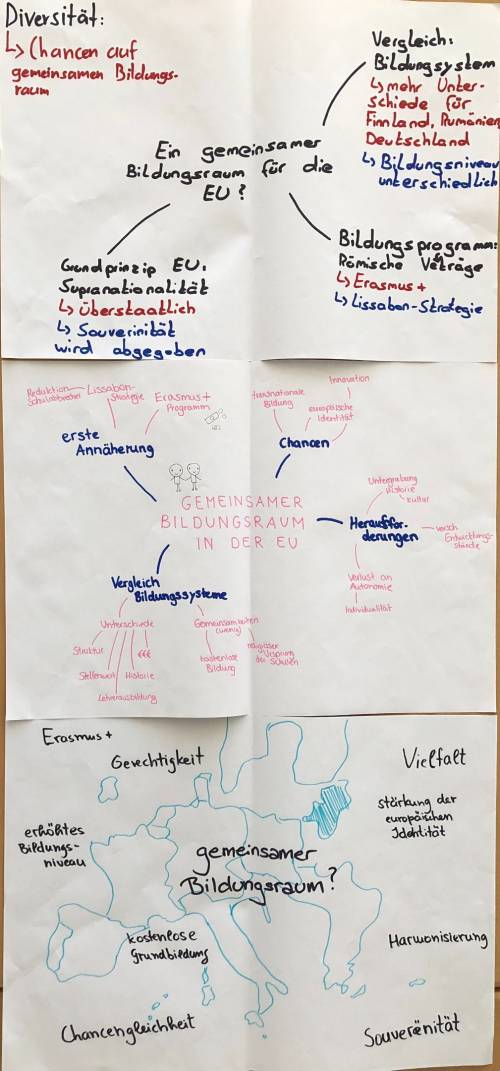 Diversität:
↳ Chancen auf
gemeinsamen Bildungs-
raum
Vergleich:
Bildungsystem
↳ mehr Unter-
schiede für
Finnland, Rumänien,
Deutschland
↳ Bildungsniveau
unterschiedlich
Ein gemeinsamer
Bildungsraum für die
EU?
Grundprinzip EU:
Supranationalität
↳ Überstaatlich
↳ Souverinität
wird abgegeben
Bildungsprogramm:
Römische Veträge
↳ Erasmus +
↳ Lissabon-Strategie
Reduktion
Schulabbrecher
Lissabon-
Strategie
Erasmus +
Programm
erste
Annäherung
Innovation
transnationale
Bildung
europäische
Identität
Chancen
GEMEINSAMER
BILDUNGSRAUM
IN DER EU
Untergrabung
Historie
Kultur
Herausfor-
derungen
versch
Entwicklungs-
stände
Verlust an
Autonomie
Individualität
Vergleich
Bildungssysteme
Unterschiede
Struktur
Stellenwert
Lehrerausbildung
Historie
€€€
Gemeinsamkeiten
(wenig)
kostenlose
Bildung
religiöser
Ursprung
der Schulen
Erasmus +
Gerechtigkeit
Vielfalt
erhöhtes
Bildungs-
niveau
stärkung der
europäischen
Identität
gemeinsamer
Bildungsraum?
kostenlose
Grundbildung
Harmonisierung
Chancengleichheit
Souverenität